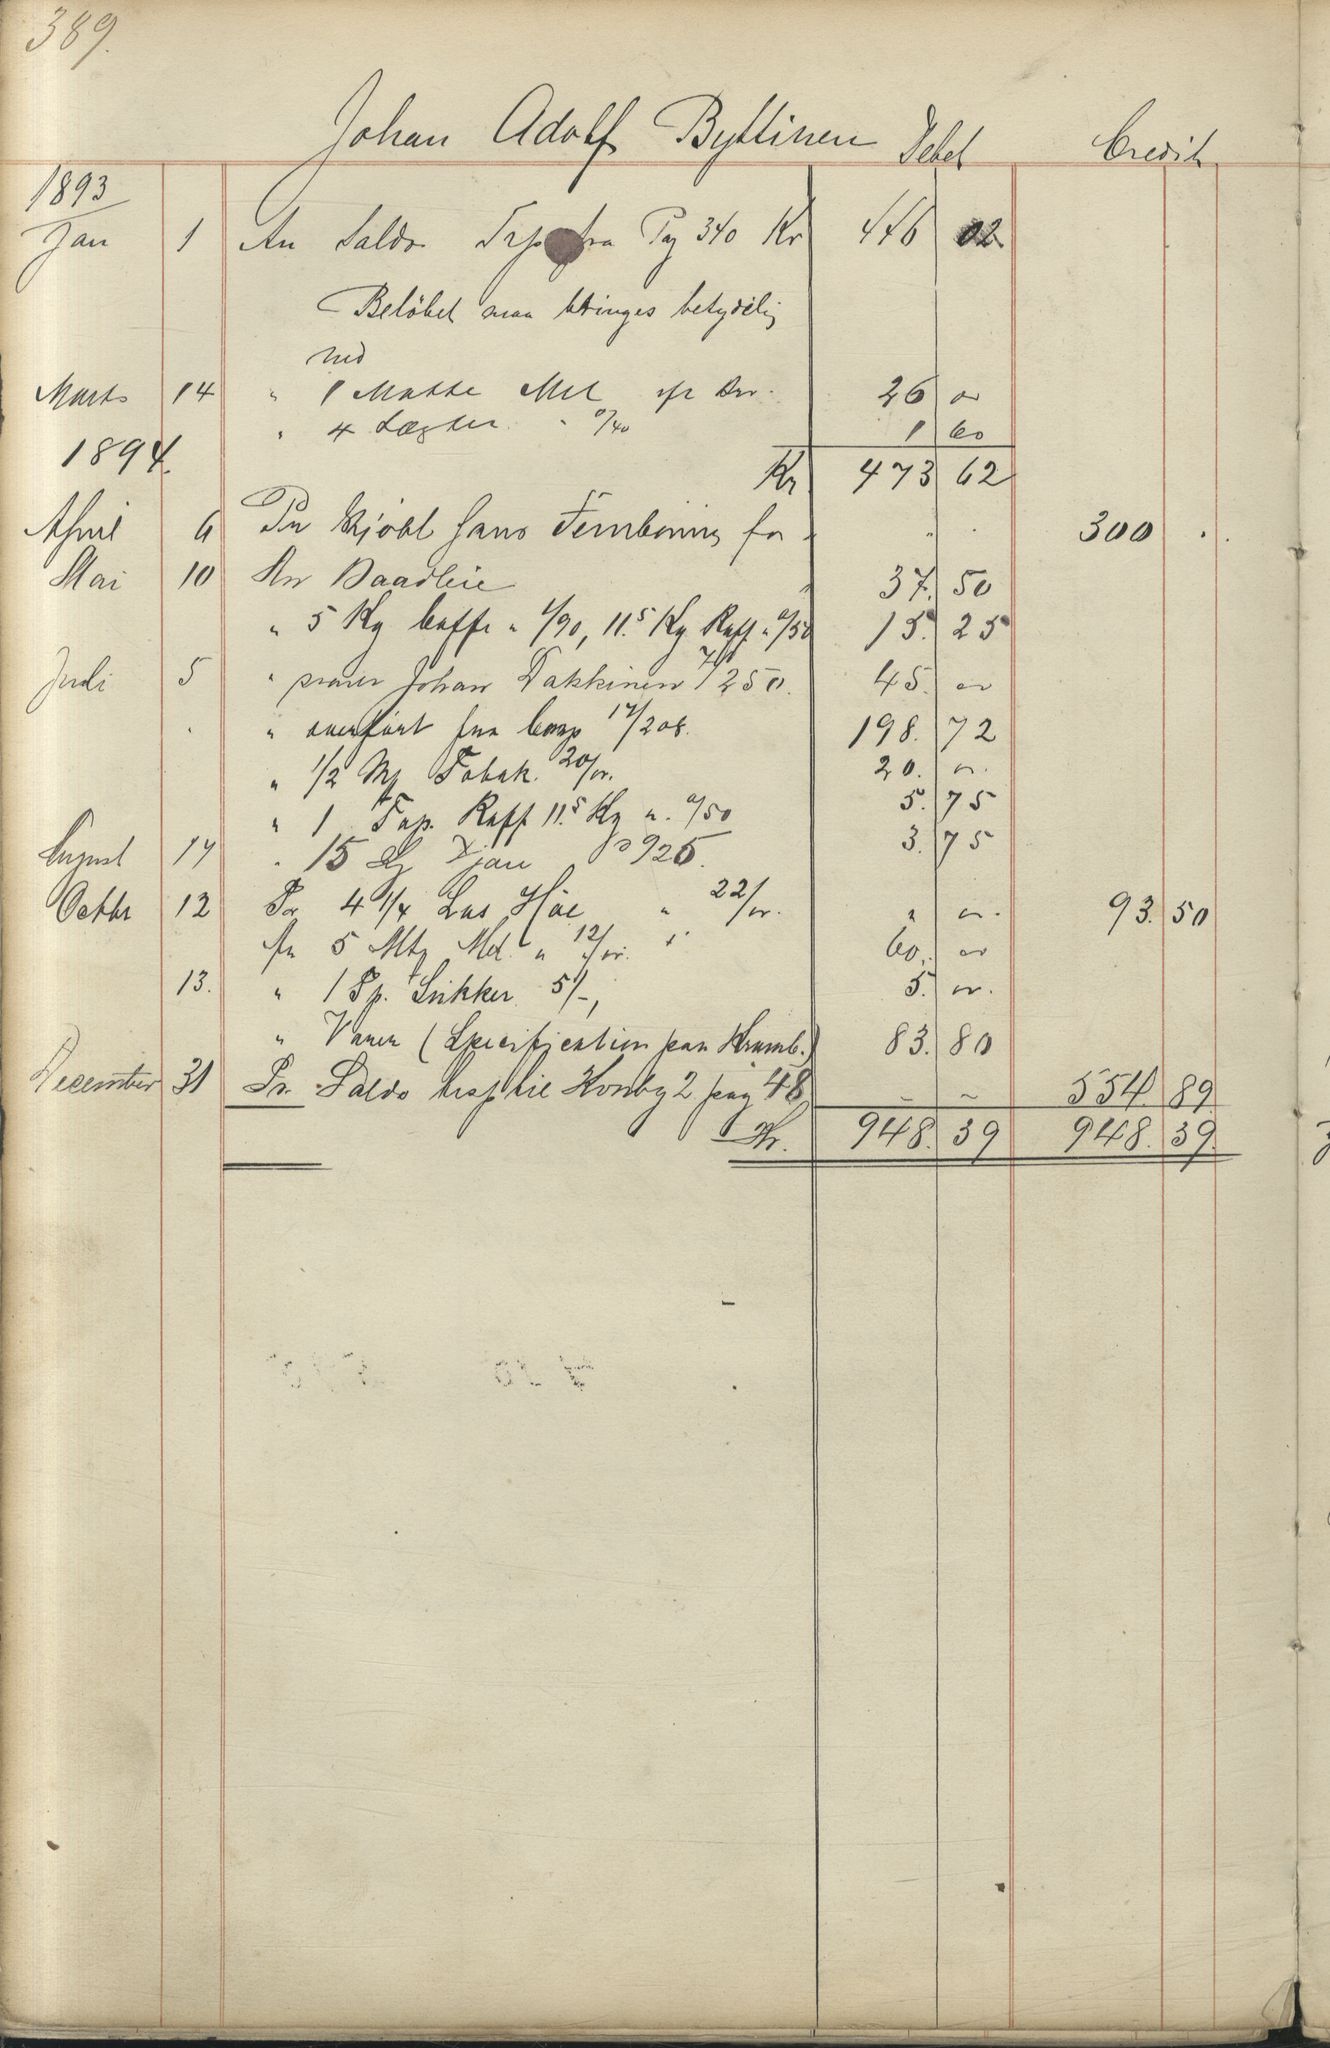 389.
Johan Adolf Byttinen Debet Credit
1893
Jan 1 An Saldo Trp fra Pag 340 Kr 446 02
Beløbet maa bringes betydelig
ned
Marts 14 " 1 Matte Mel 26 "
" 4 Lægter " 0/40 1 60
1894.
Kr 473 62
April 6 Pr kjøbt hans Fembøring for " " 300 "
Mai 10 An Baadleie 37. 50
" 5 Kg Caffe " 1/90, 11.5 Kg Kaff " 0/50 15. 25
Juli 5 " Johan Takkinen 45. "
" " overført fra Comp 17/208. 198. 72
" 1/2 Tobak. 20/". 20. "
" 1 Kaff 11.5 Kg a. 0/50 5. 75
August 14 " 15 Tjære 3. 75
Octbr 12 Pr 4 1/4 Las Høe " 22/". " " 93. 50
An 5 Mtr Mel " 12/". 60. "
13. " 1 Tp. Sukker 5/- 5. "
" Varer (Specification paa Kramb.) 83. 80
December 31 Pr. Saldo trsp til Hovbg 2 pag 48 - - 554. 89
Kr. 948. 39 948. 39.